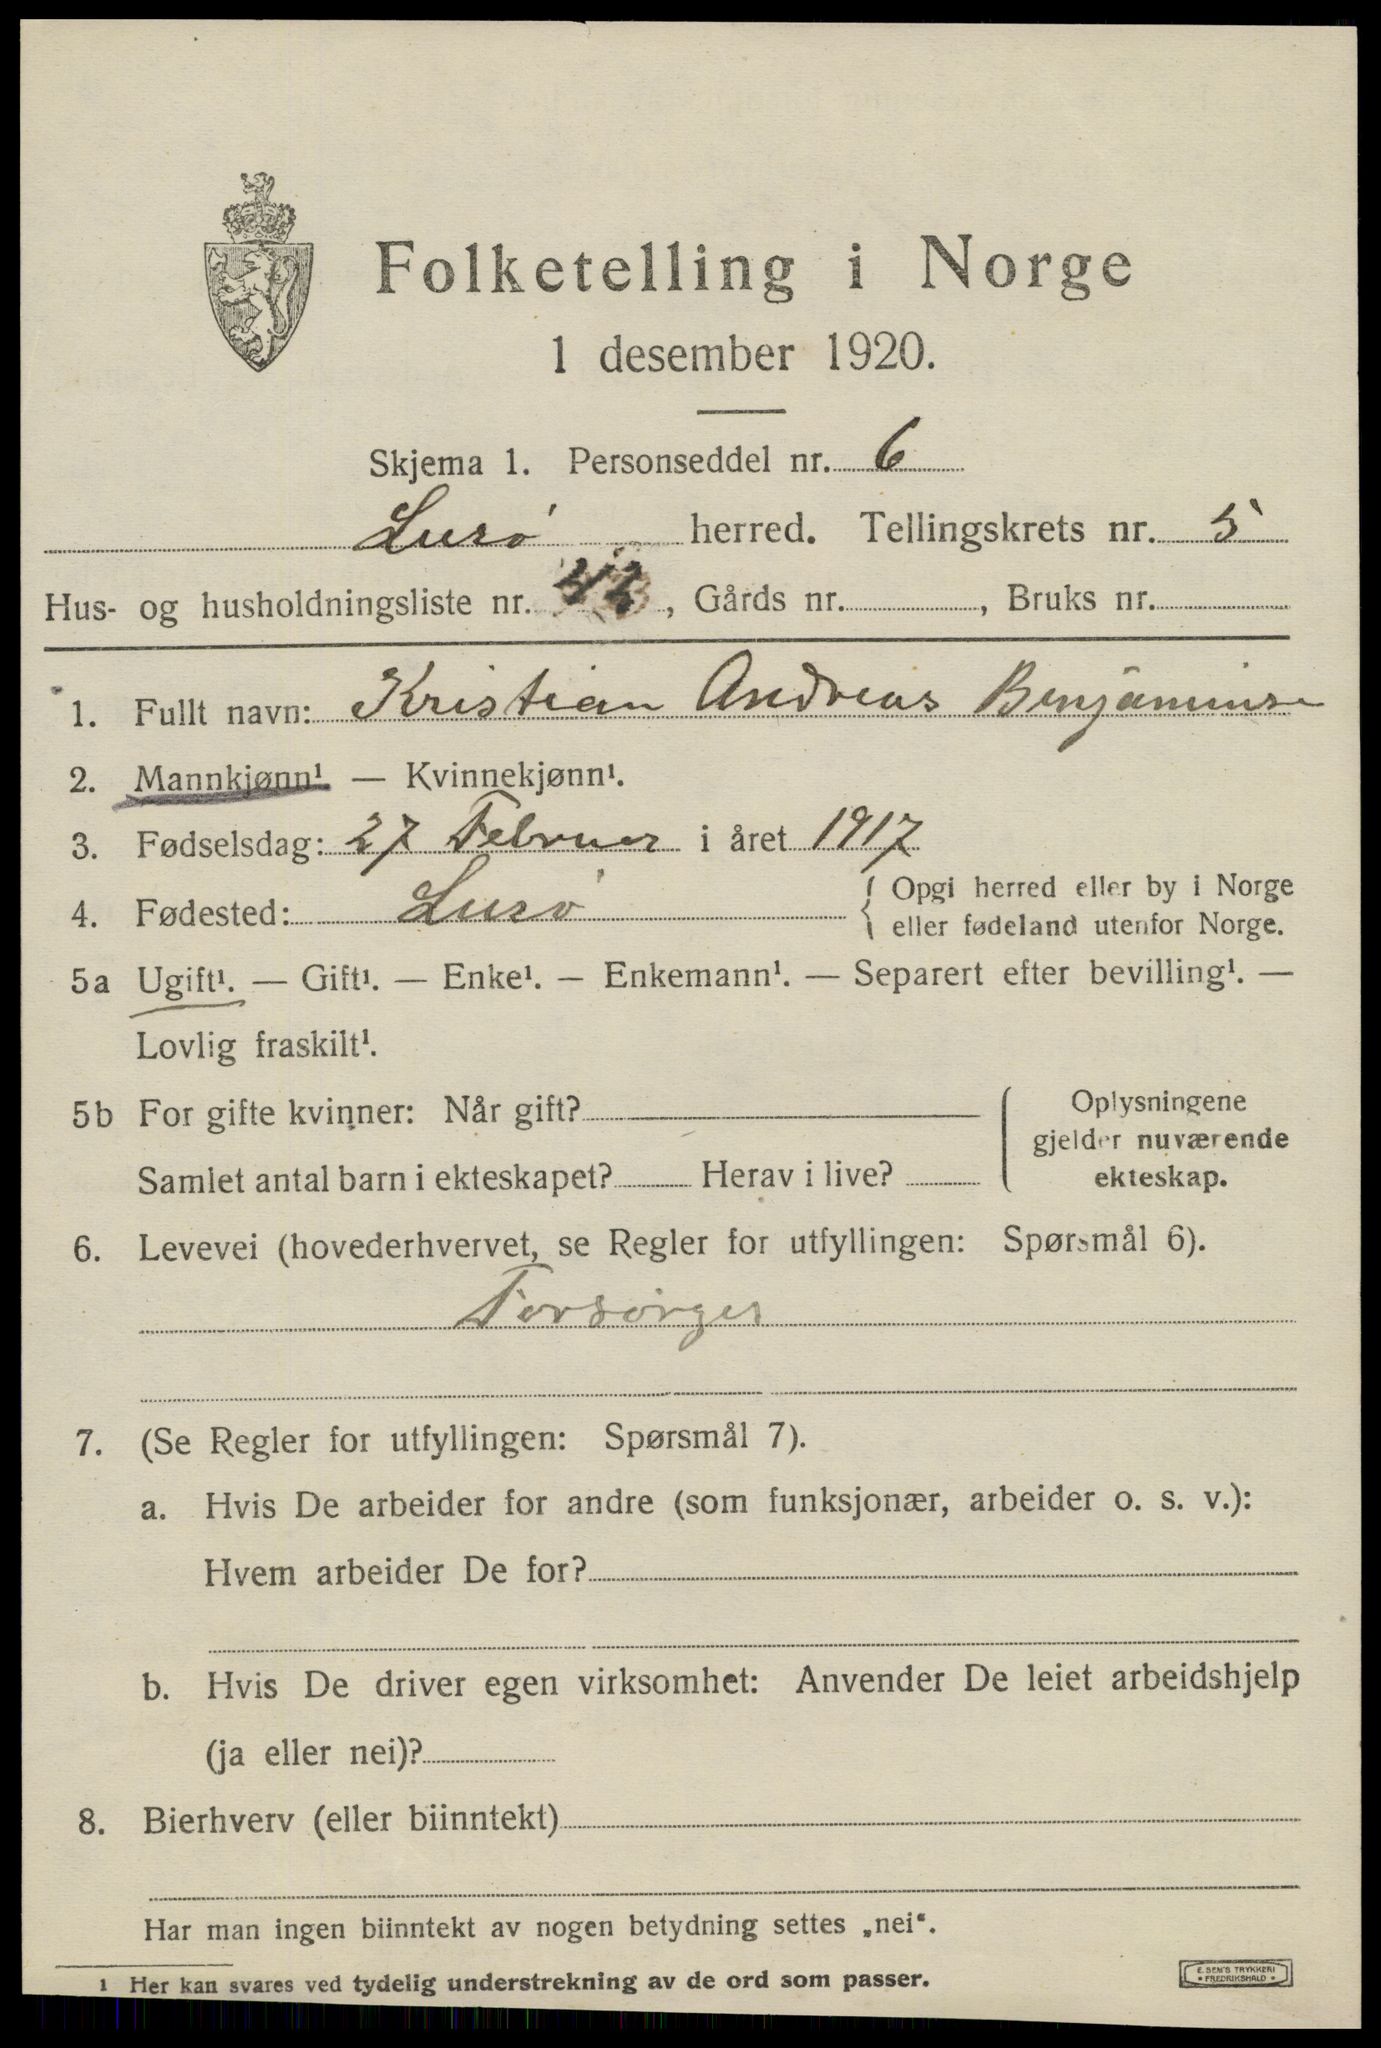 Folketelling i Norge
1 desember 1920.
Skjema 1. Personseddel nr. 6
Lurø herred. Tellingskrets nr. 5
Hus- og husholdningsliste nr. , Gårds nr. , Bruks nr.
1. Fullt navn: Kristian Andreas Benjaminse
2. Mannkjønn¹ — Kvinnekjønn¹.
3. Fødselsdag: 27 Februer i året 1917
4. Fødested: Lurø { Opgi herred eller by i Norge
eller fødeland utenfor Norge.
5a Ugift¹. — Gift¹. — Enke¹. — Enkemann¹. — Separert efter bevilling¹. —
Lovlig fraskilt¹.
5b For gifte kvinner: Når gift? { Oplysningene
gjelder nuværende
Samlet antal barn i ekteskapet? Herav i live? ekteskap.
6. Levevei (hovederhvervet, se Regler for utfyllingen: Spørsmål 6).
Forsørges
7. (Se Regler for utfyllingen: Spørsmål 7).
a. Hvis De arbeider for andre (som funksjonær, arbeider o. s. v.):
Hvem arbeider De for?
b. Hvis De driver egen virksomhet: Anvender De leiet arbeidshjelp
(ja eller nei)?
8. Bierhverv (eller biinntekt)
Har man ingen biinntekt av nogen betydning settes „nei“.
¹ Her kan svares ved tydelig understrekning av de ord som passer.
E. SEM'S TRYKKERI
• FREDRIKSHALD •